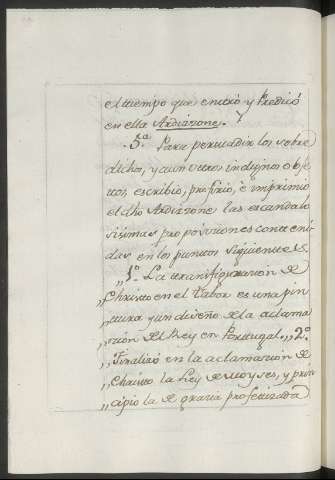 el tiempo que entró y Predicó
en ella Ardizone.
5.ª Para persuadir los sobre
dichos, y aun otros indignos obje
tos, escribió, profirió, è imprimió
el dho Ardizone las escandalo
sisimas proposiciones conteni
das en los puntos siguientes
„1.º La transfiguracion de
„Christo en el Tabor es una pin
„tura y un diseño de la aclama
„cion del Rey en Portugal. „2.º
„Finalizó en la aclamacion de
„Christo la Ley de Moyses, y prin
„cipio la de gracia profetizada